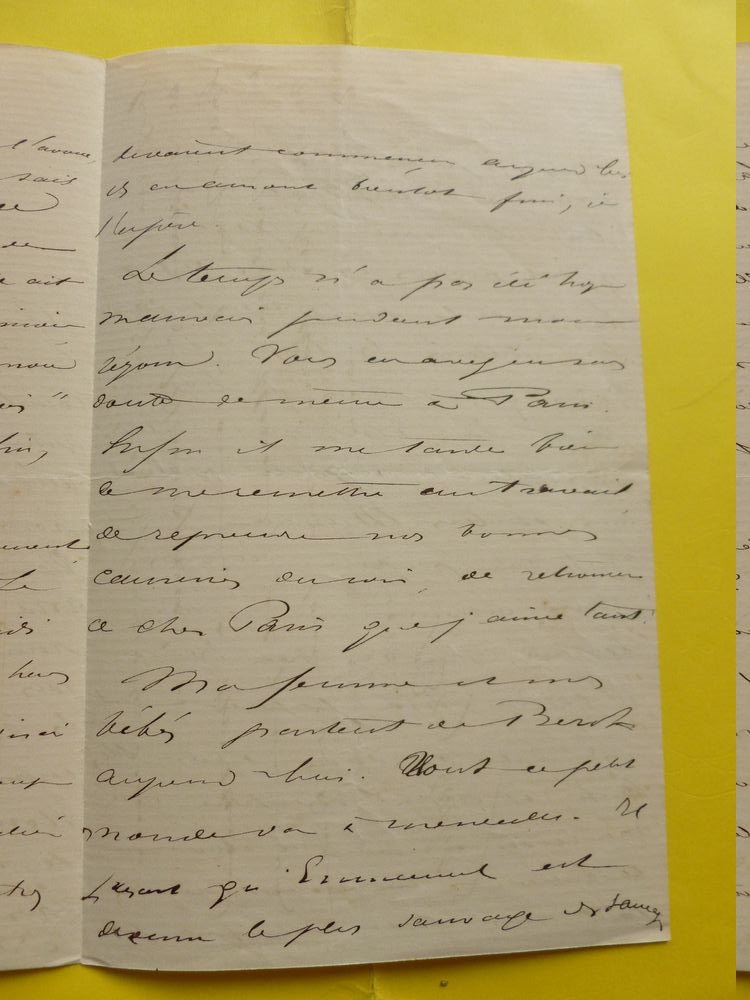 l'avoue,
sais
ce
de
ait
"
Le
hier
devaient commencer aujourd'hui
et en auront bientôt fini, je
l'espère.
Le temps n'a pas été trop
mauvais pendant mon
séjour. Vous en avez eu sans
doute de même à Paris.
Enfin il me tarde bien
de me remettre au travail
de reprendre nos bonnes
causeries du soir, de retrouver
ce cher Paris que j'aime tant.
Ma femme et mes
bébés partent de Berck
aujourd'hui. Tout ce petit
monde va à merveille. Il
paraît qu'Emmanuel est
devenu le plus sauvage des